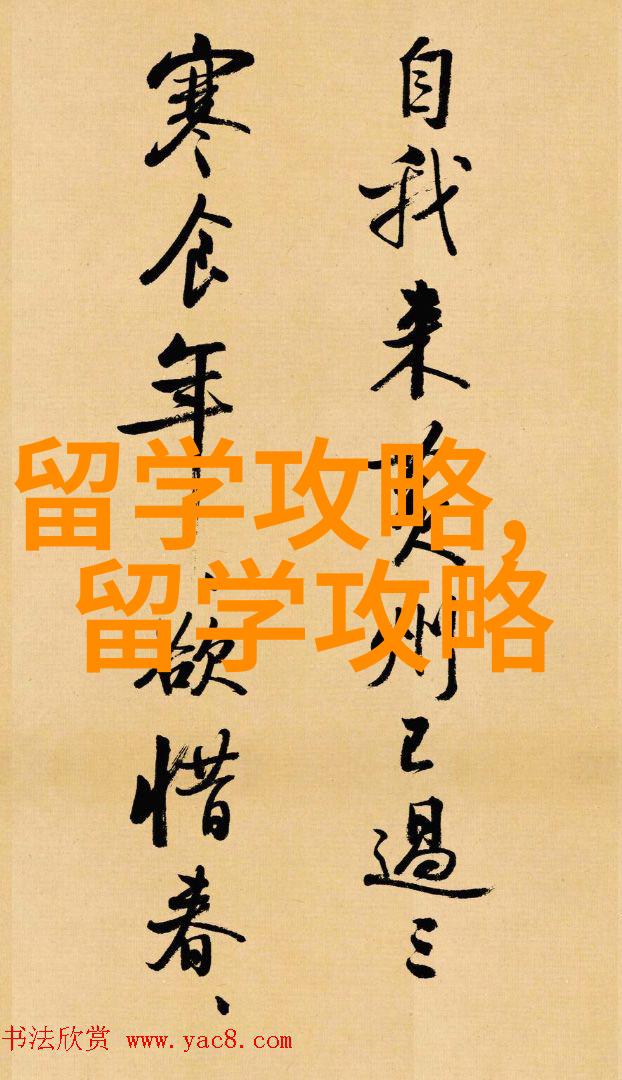 自我来黄州已過三
寒食年、欲惜春、
留学攻略,
留学攻略
书法欣赏 www.yac8.com